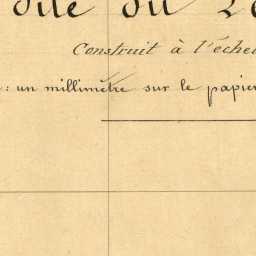 dite du
Construit à l'éche
: un millimètre sur le papier